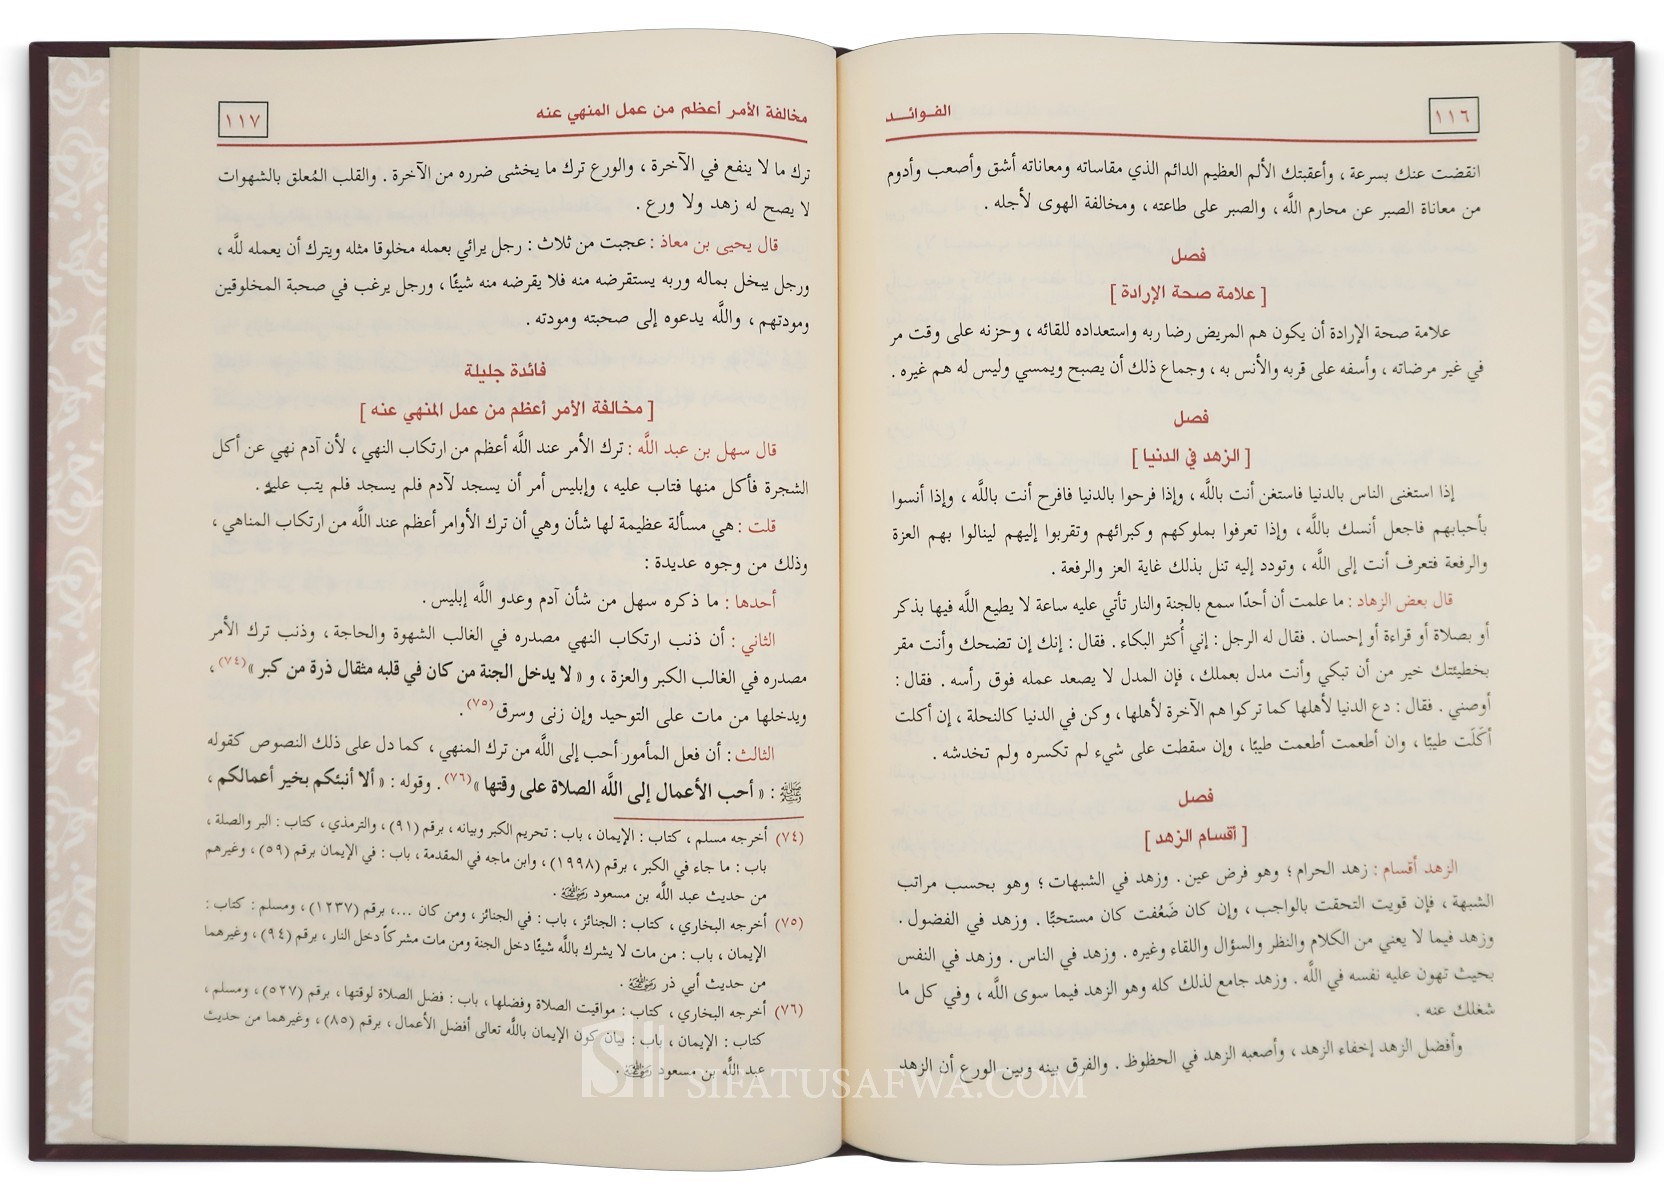 ١١٦
الفوائد
انقضت عنك بسرعة ، وأعقبتك الألم العظيم الدائم الذي مقاساته ومعاناته أشق وأصعب وأدوم
من معاناة الصبر عن محارم اللَّه ، والصبر على طاعته ، ومخالفة الهوى لأجله .
فصل
[ علامة صحة الإرادة ]
علامة صحة الإرادة أن يكون هم المريض رضا ربه واستعداده للقائه ، وحزنه على وقت مر
في غير مرضاته ، وأسفه على قربه والأنس به ، وجماع ذلك أن يصبح ويمسي وليس له هم غيره .
فصل
[ الزهد في الدنيا ]
إذا استغنى الناس بالدنيا فاستغن أنت باللَّه ، وإذا فرحوا بالدنيا فافرح أنت باللَّه ، وإذا أنسوا
بأحبابهم فاجعل أنسك باللَّه ، وإذا تعرفوا بملوكهم وكبرائهم وتقربوا إليهم لينالوا بهم العزة
والرفعة فتعرف أنت إلى اللَّه ، وتودد إليه تنل بذلك غاية العز والرفعة .
قال بعض الزهاد : ما علمت أن أحدًا سمع بالجنة والنار تأتي عليه ساعة لا يطيع اللَّه فيها بذكر
أو بصلاة أو قراءة أو إحسان . فقال له الرجل : إني أُكثر البكاء . فقال : إنك إن تضحك وأنت مقر
بخطيئتك خير من أن تبكي وأنت مدل بعملك ، فإن المدل لا يصعد عمله فوق رأسه . فقال :
أوصني . فقال : دع الدنيا لأهلها كما تركوا هم الآخرة لأهلها ، وكن في الدنيا كالنحلة ، إن أكلت
أكَلَت طيبًا ، وان أطعمت أطعمت طيبًا ، وإن سقطت على شيء لم تكسره ولم تخدشه .
فصل
[ أقسام الزهد ]
الزهد أقسام : زهد الحرام ؛ وهو فرض عين . وزهد في الشبهات ؛ وهو بحسب مراتب
الشبهة ، فإن قويت التحقت بالواجب ، وإن كان ضَعُفت كان مستحبًّا . وزهد في الفضول .
وزهد فيما لا يعني من الكلام والنظر والسؤال واللقاء وغيره . وزهد في الناس . وزهد في النفس
بحيث تهون عليه نفسه في اللَّه . وزهد جامع لذلك كله وهو الزهد فيما سوى اللَّه ، وفي كل ما
شغلك عنه .
وأفضل الزهد إخفاء الزهد ، وأصعبه الزهد في الحظوظ . والفرق بينه وبين الورع أن الزهد
مخالفة الأمر أعظم من عمل المنهي عنه
١١٧
ترك ما لا ينفع في الآخرة ، والورع ترك ما يخشى ضرره من الآخرة . والقلب المُعلق بالشهوات
لا يصح له زهد ولا ورع .
قال يحيى بن معاذ : عجبت من ثلاث : رجل يرائي بعمله مخلوقا مثله ويترك أن يعمله للَّه ،
ورجل يبخل بماله وربه يستقرضه منه فلا يقرضه منه شيئًا ، ورجل يرغب في صحبة المخلوقين
ومودتهم ، واللَّه يدعوه إلى صحبته ومودته .
فائدة جليلة
[ مخالفة الأمر أعظم من عمل المنهي عنه ]
قال سهل بن عبد اللَّه : ترك الأمر عند اللَّه أعظم من ارتكاب النهي ، لأن آدم نهي عن أكل
الشجرة فأكل منها فتاب عليه ، وإبليس أمر أن يسجد لآدم فلم يسجد فلم يتب عليه .
قلت : هي مسألة عظيمة لها شأن وهي أن ترك الأوامر أعظم عند اللَّه من ارتكاب المناهي ،
وذلك من وجوه عديدة :
أحدها : ما ذكره سهل من شأن آدم وعدو اللَّه إبليس .
الثاني : أن ذنب ارتكاب النهي مصدره في الغالب الشهوة والحاجة ، وذنب ترك الأمر
مصدره في الغالب الكبر والعزة ، و « لا يدخل الجنة من كان في قلبه مثقال ذرة من كبر »(٧٤) ،
ويدخلها من مات على التوحيد وإن زنى وسرق(٧٥) .
الثالث : أن فعل المأمور أحب إلى اللَّه من ترك المنهي ، كما دل على ذلك النصوص كقوله
ﷺ : « أحب الأعمال إلى اللَّه الصلاة على وقتها »(٧٦) . وقوله : « ألا أنبئكم بخير أعمالكم ،
(٧٤) أخرجه مسلم ، كتاب : الإيمان ، باب : تحريم الكبر وبيانه ، برقم (٩١) ، والترمذي ، كتاب : البر والصلة ،
باب : ما جاء في الكبر ، برقم (١٩٩٨) ، وابن ماجه في المقدمة ، باب : في الإيمان برقم (٥٩) ، وغيرهم
من حديث عبد اللَّه بن مسعود رضي الله عنه .
(٧٥) أخرجه البخاري ، كتاب : الجنائز ، باب : في الجنائز ، ومن كان ...، برقم (١٢٣٧) ، ومسلم : كتاب :
الإيمان ، باب : من مات لا يشرك باللَّه شيئًا دخل الجنة ومن مات مشركاً دخل النار ، برقم (٩٤) ، وغيرهما
من حديث أبي ذر رضي الله عنه .
(٧٦) أخرجه البخاري ، كتاب : مواقيت الصلاة وفضلها ، باب : فضل الصلاة لوقتها ، برقم (٥٢٧) ، ومسلم ،
كتاب : الإيمان ، باب : بيان كون الإيمان باللَّه تعالى أفضل الأعمال ، برقم (٨٥) ، وغيرهما من حديث
عبد اللَّه بن مسعود رضي الله عنه .
SIFATUSAFWA.COM